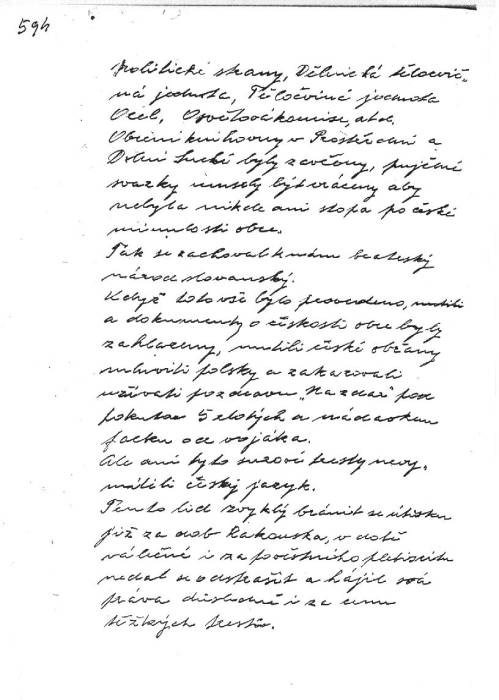 594
Politické strany, Dělnická tělocvič-
ná jednota, Tělocvičná jednota
Orel, Osvětová komise, atd.
Obecní knihovny v Prostřední a
Dolní Suché byly zavřeny, pujčené
svazky musely být vráceny aby
nebyla nikde ani stopa po české
minulosti obce.
Tak se zachoval k nám bratrský
národ slovanský.
Když toto vše bylo provedeno,
a dokumenty o českosti obce byly
zahlazeny, nutili české občany
mluviti polsky a zakazovali
užívati pozdravu "Nazdar" pod
pokutou 5 zlotých a
facku od vojáka.
Ale ani tyto surové tresty nevy-
mýtili český jazyk.
Tento lid zvyklý brániti se útisku
již za dob Rakouska, v době
válečné i za plebiscitu
nedal se odstrašit a hájil svá
práva důsledně i za cenu
těžkých trestů.